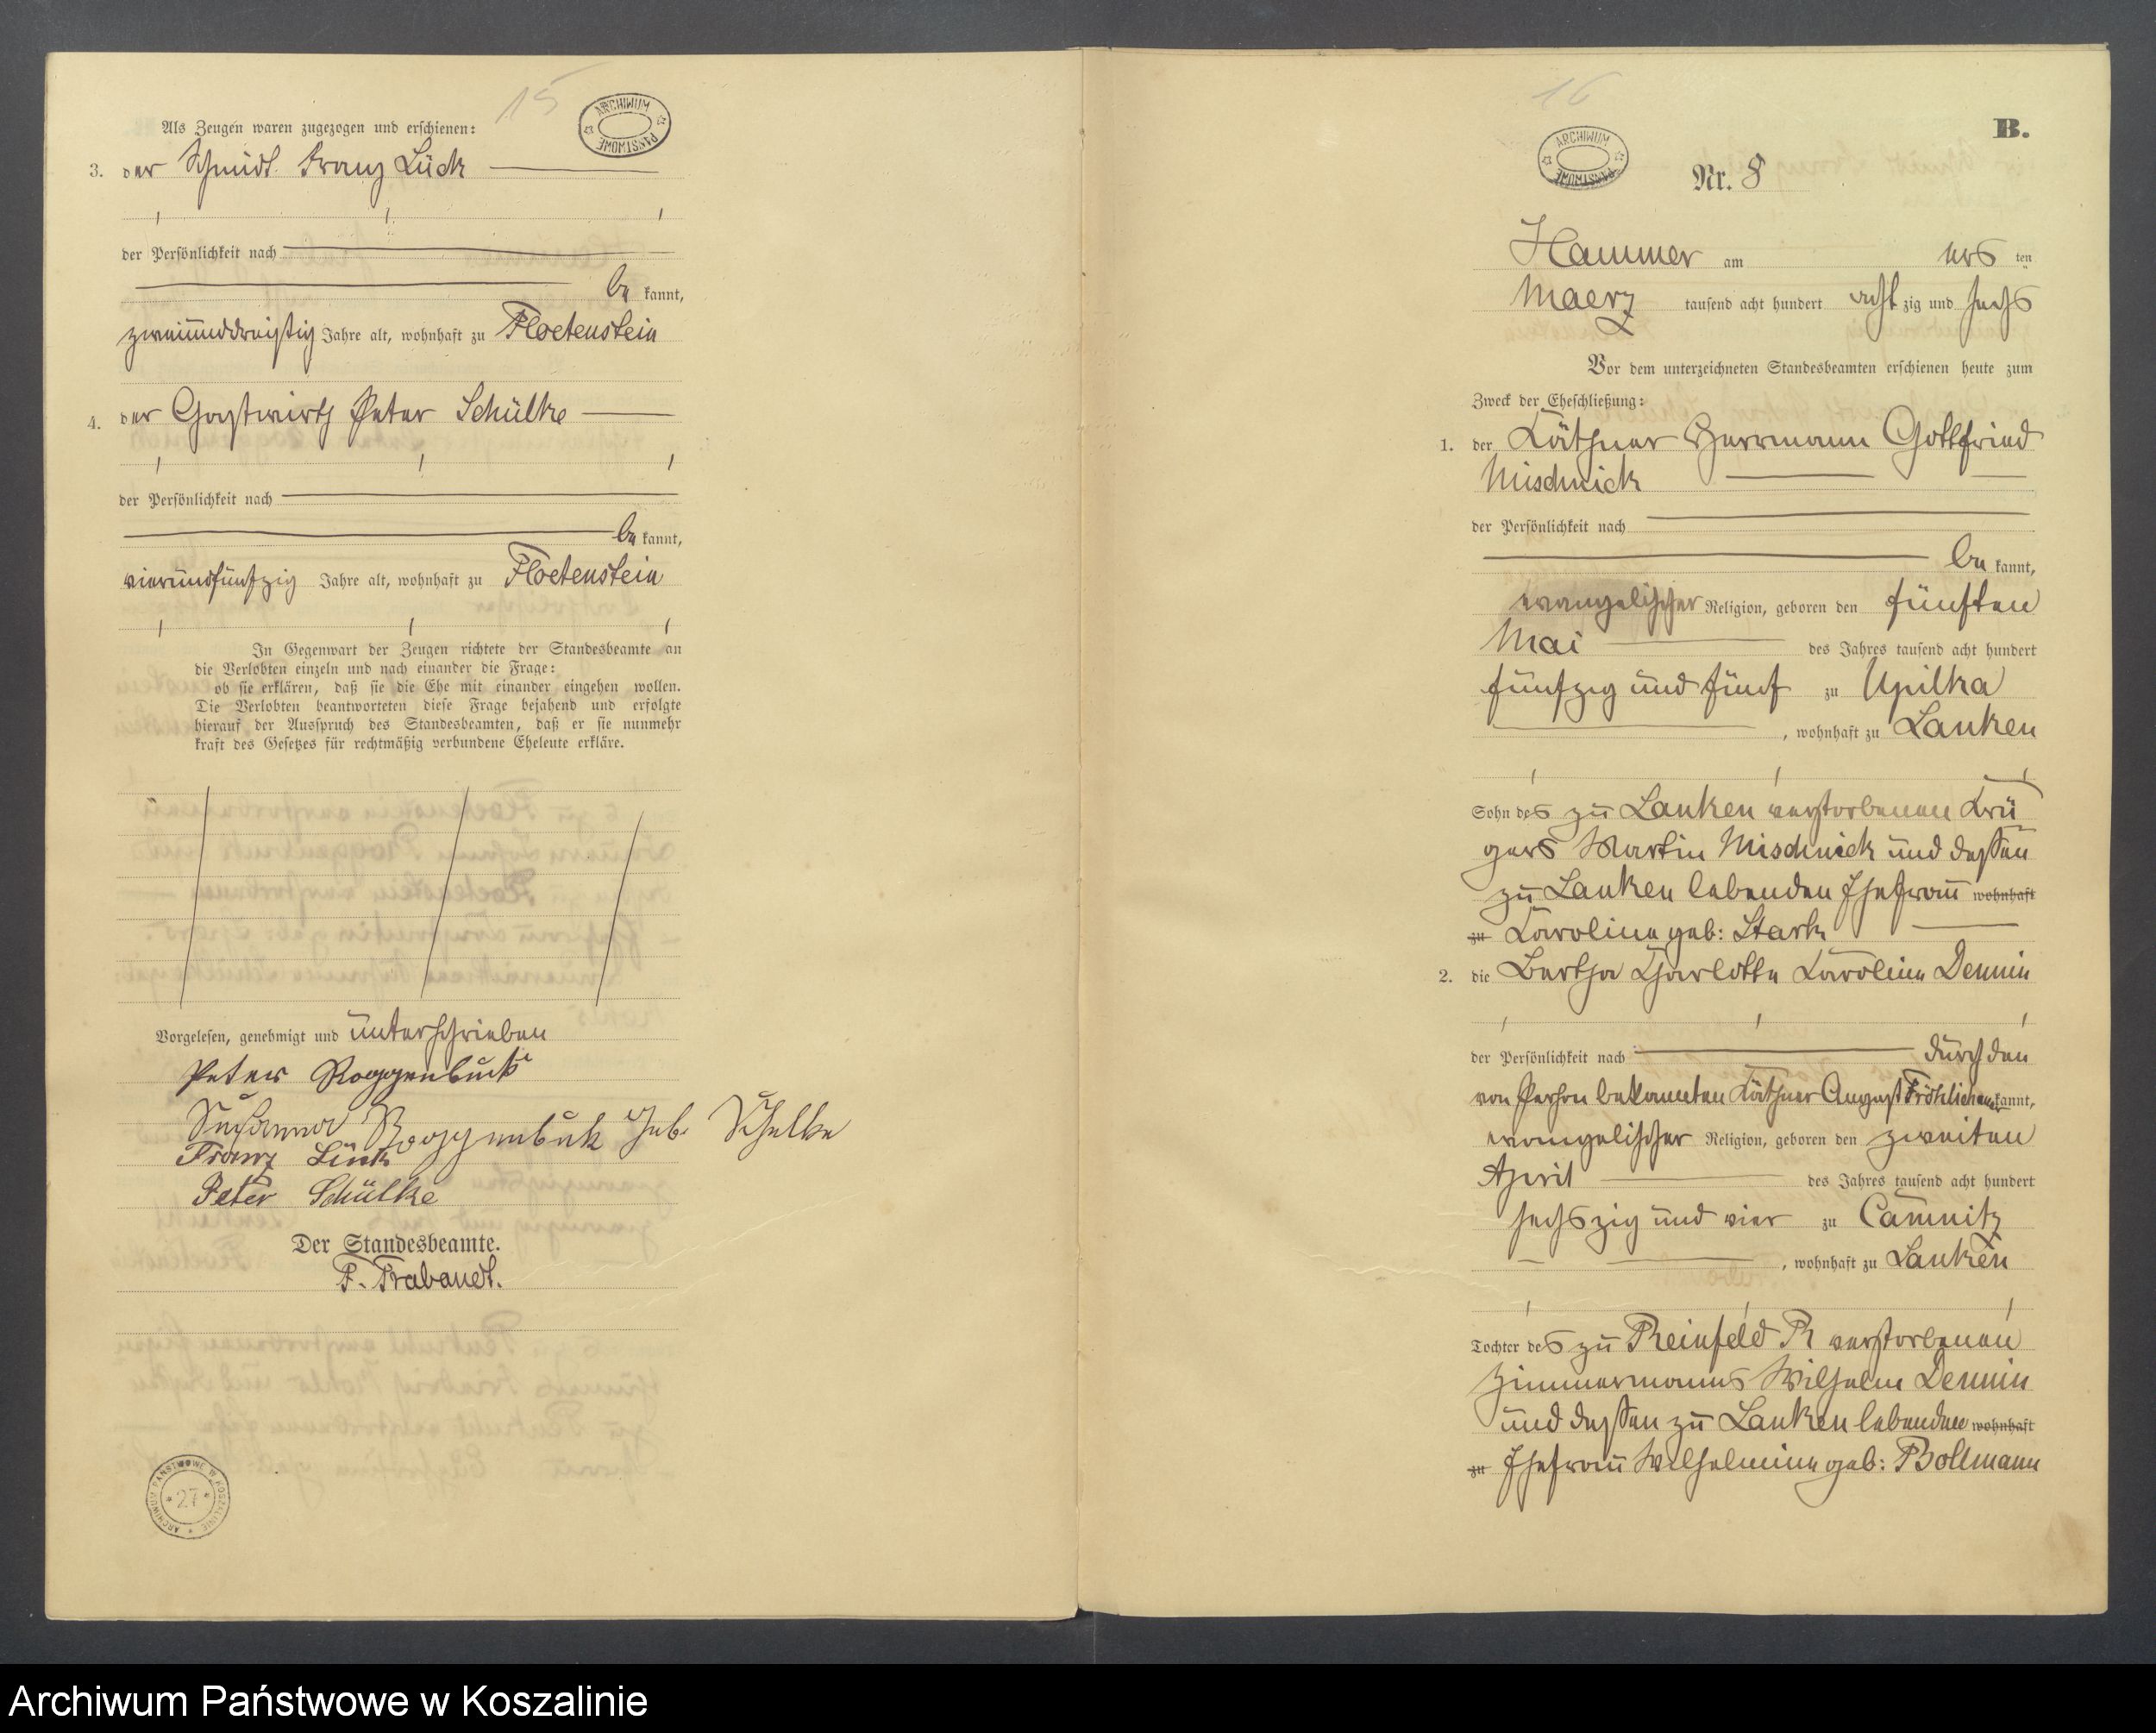 15
ARCHIWUM PAŃSTWOWE
Als Zeugen waren zugezogen und erschienen:
3. der Schmidt Franz Lück
der Persönlichkeit nach
be kannt,
zweiunddreißig Jahre alt, wohnhaft zu Floetenstein
4. der Gastwirth Peter Schülke
der Persönlichkeit nach
be kannt,
vierundfünfzig Jahre alt, wohnhaft zu Floetenstein
In Gegenwart der Zeugen richtete der Standesbeamte an
die Verlobten einzeln und nach einander die Frage:
ob sie erklären, daß sie die Ehe mit einander eingehen wollen.
Die Verlobten beantworteten diese Frage bejahend und erfolgte
hierauf der Ausspruch des Standesbeamten, daß er sie nunmehr
kraft des Gesetzes für rechtmäßig verbundene Eheleute erkläre.
Vorgelesen, genehmigt und unterschrieben
Peter Roggenbuck
Susanna Roggenbuk geb. Schelke
Franz Lück
Peter Schülke
Der Standesbeamte.
F. Trabandt.
ARCHIWUM PAŃSTWOWE W KOSZALINIE
* 27 *
16
ARCHIWUM PAŃSTWOWE
B.
Nr. 8
Hammer am ers ten
Maerz tausend acht hundert acht zig und sechs
Vor dem unterzeichneten Standesbeamten erschienen heute zum
Zweck der Eheschließung:
1. der Käthner Herrmann Gottfried
Mischnick
der Persönlichkeit nach
be kannt,
evangelischer Religion, geboren den fünften
Mai des Jahres tausend acht hundert
fünfzig und fünf zu Upilka
, wohnhaft zu Lanken
Sohn des zu Lanken verstorbenen Krü
gers Martin Mischnick und dessen
zu Lanken lebenden Ehefrau wohnhaft
zu Karoline geb: Stark
2. die Bertha Charlotte Karoline Demin
der Persönlichkeit nach durch den
von Person bekannten Käthner August Fröhlich kannt,
evangelischer Religion, geboren den zweiten
April des Jahres tausend acht hundert
sechszig und vier zu Camnitz
, wohnhaft zu Lanken
Tochter des zu Reinfeld R verstorbenen
Zimmermanns Wilhelm Demin
und dessen zu Lanken lebenden wohnhaft
zu Ehefrau Wilhelmine geb: Bollmann
Archiwum Państwowe w Koszalinie